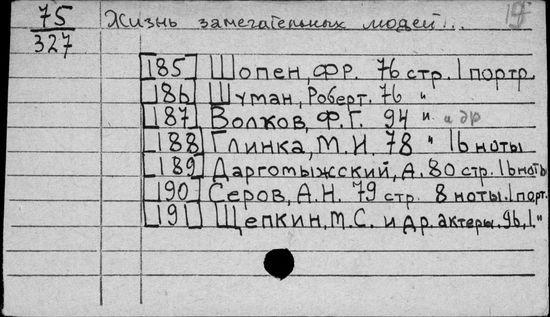 75 Жизнь замечательных людей... 19
327
185 Шопен, ФР. 76 стр. 1 портр.
186 Шуман, Роберт. 76 "
187 Волков, Ф.Г. 94 и. и др
188 Глинка, М.И. 78 " 16 ноты
189 Даргомыжский, А. 80 стр. 16 ноты
190 Серов, А.Н. 79 стр. 8 ноты. 1 порт.
191 Щепкин, М.С. и др. актеры. 96, 1. "